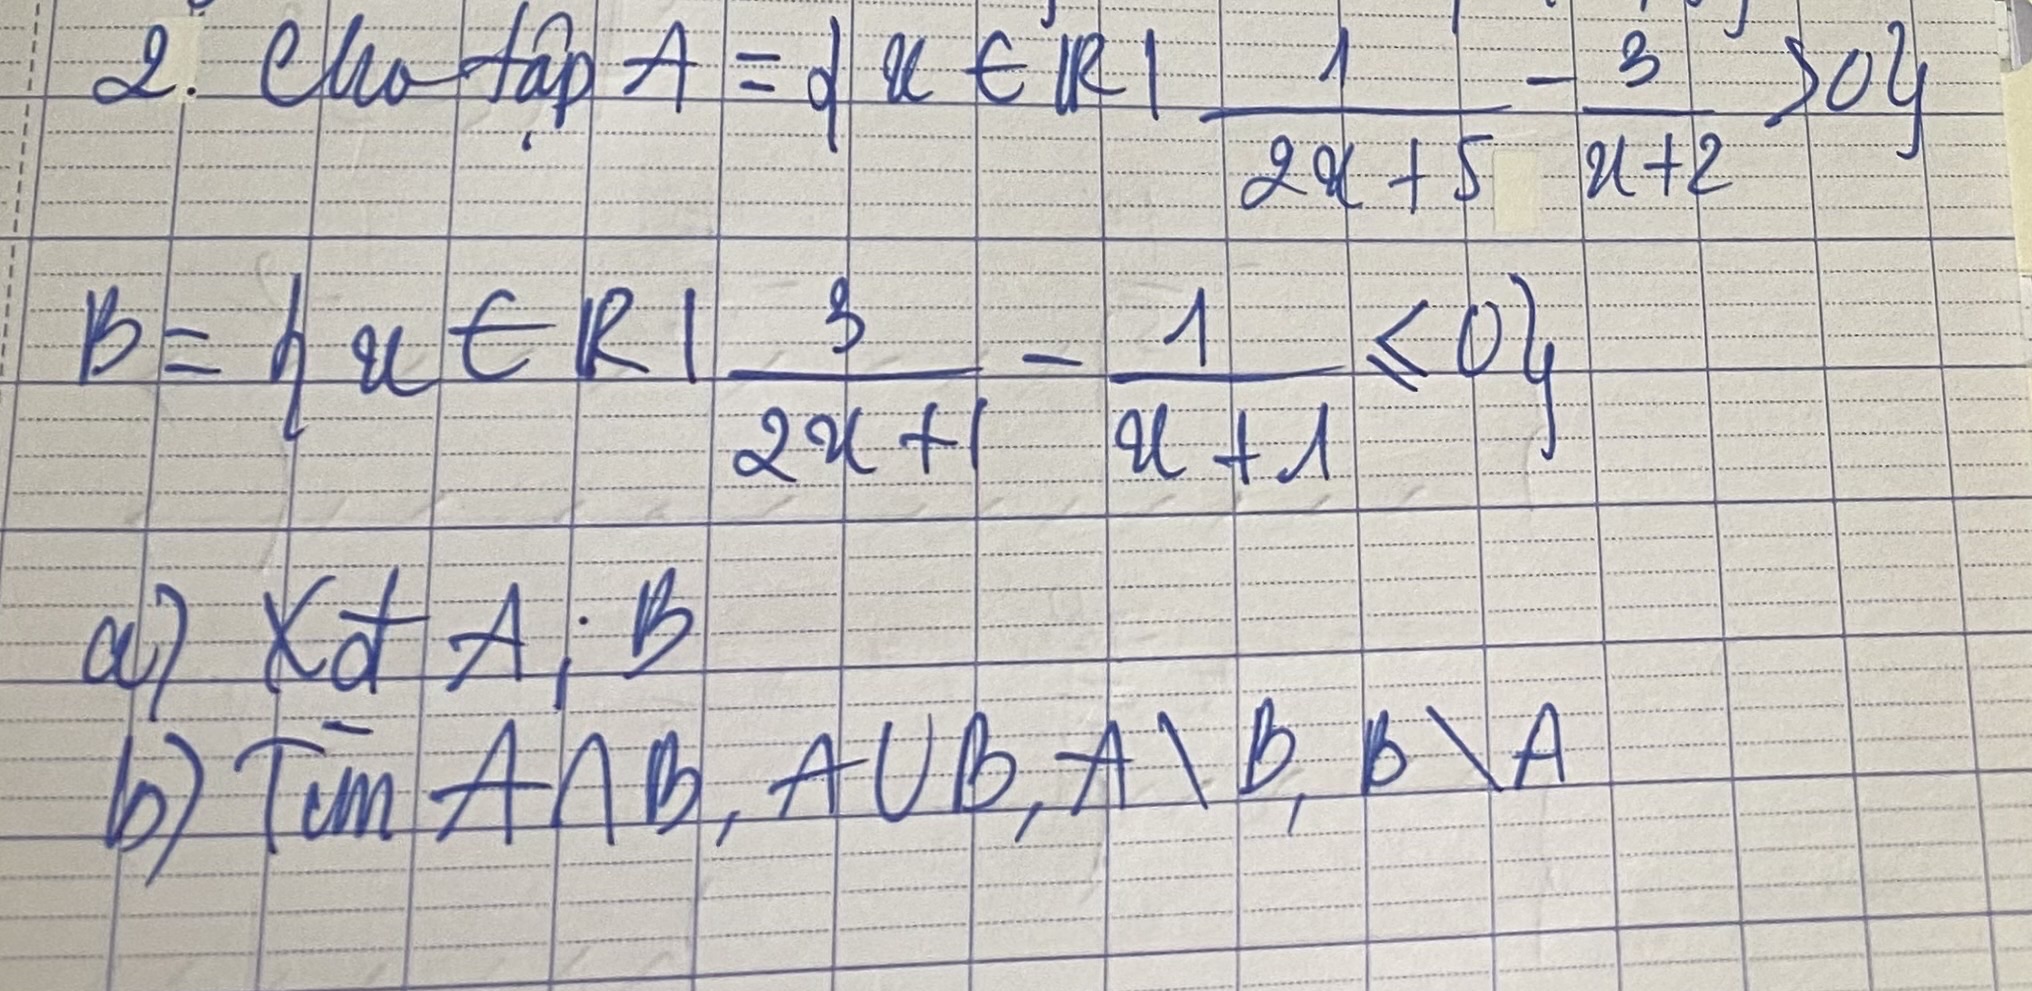 2. Cho tập A = { x ∈ R | 1/(2x+5) - 3/(x+2) > 0}
B = { x ∈ R | 3/(2x+1) - 1/(x+1) ≤ 0}
a) Xđ A; B
b) Tìm A∩B, A∪B, A\B, B\A